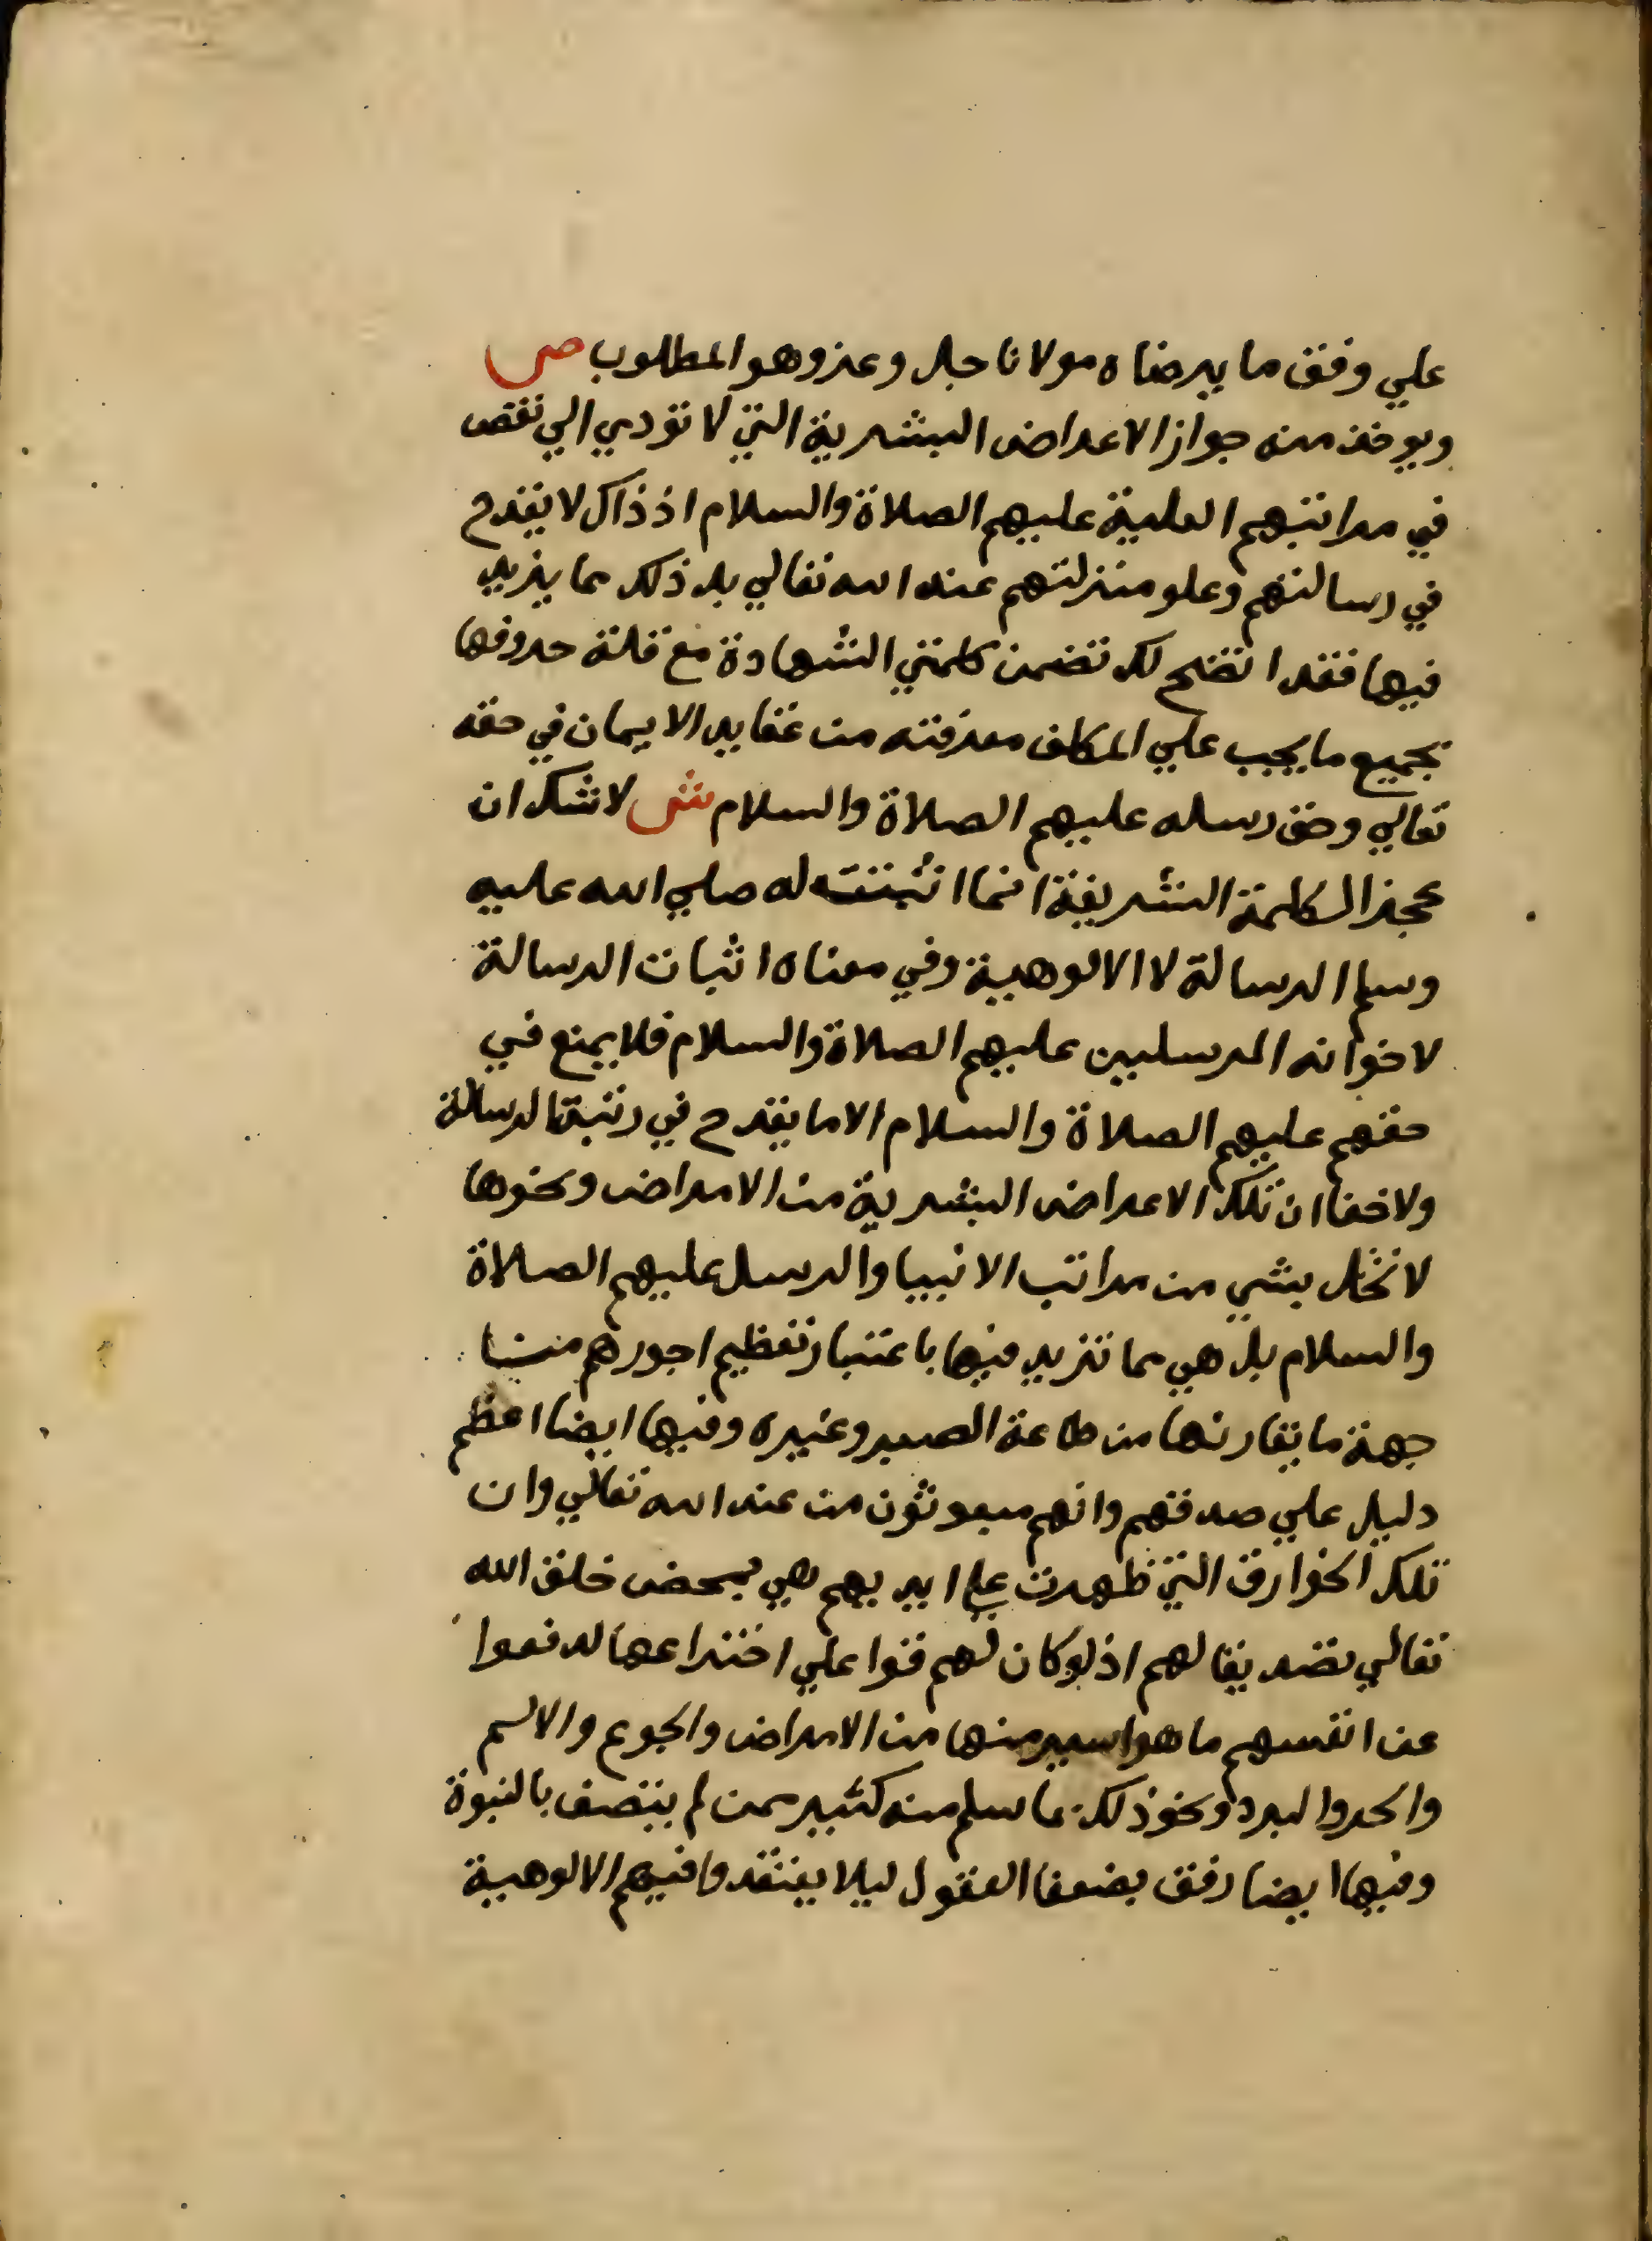 علي وفق ما يرضاه مولانا جل وعز وهو المطلوب ص
ويوخذ منه جواز الاعراض البشرية التي لا تؤدي الي نقص
في مراتبهم العلية عليهم الصلاة والسلام اذ ذاك لا يقدح
في رسالتهم وعلو منزلتهم عند الله تعالي بل ذلك مما يزيد
فيها فقد اتضح لك تضمن كلمتي الشهادة مع قلة حروفها
بجميع ما يجب علي المكلف معرفته من عقايد الايمان في حقه
تعالي وحق رسله عليهم الصلاة والسلام ش لا شك ان
عجز الكلمة الشريفة انما اثبتت له صلي الله عليه
وسلم الرسالة لا الالوهية وفي معناه اثبات الرسالة
لاخوانه المرسلين عليهم الصلاة والسلام فلا يمنع في
حقهم عليهم الصلاة والسلام الا ما يقدح في رتبة الرسالة
ولا خفا ان تلك الاعراض البشرية من الامراض ونحوها
لا تخل بشي من مراتب الانبيا والرسل عليهم الصلاة
والسلام بل هي مما تزيد فيها باعتبار تعظيم اجورهم من
جهة ما يقارنها من طاعة الصبر وغيره وفيها ايضا اعظم
دليل علي صدقهم وانهم مبعوثون من عند الله تعالي وان
تلك الخوارق التي ظهرت علي ايديهم هي بمحض خلق الله
تعالي تصديقا لهم اذ لو كان لهم قوا علي اختراعها لدفعوا
عن انفسهم ما هو ايسر منها من الامراض والجوع والالم
والحر والبرد ونحو ذلك مما سلم منه كثير ممن لم يتصف بالنبوة
وفيها ايضا رفق بضعفا العقول ليلا يعتقدوا فيهم الالوهية